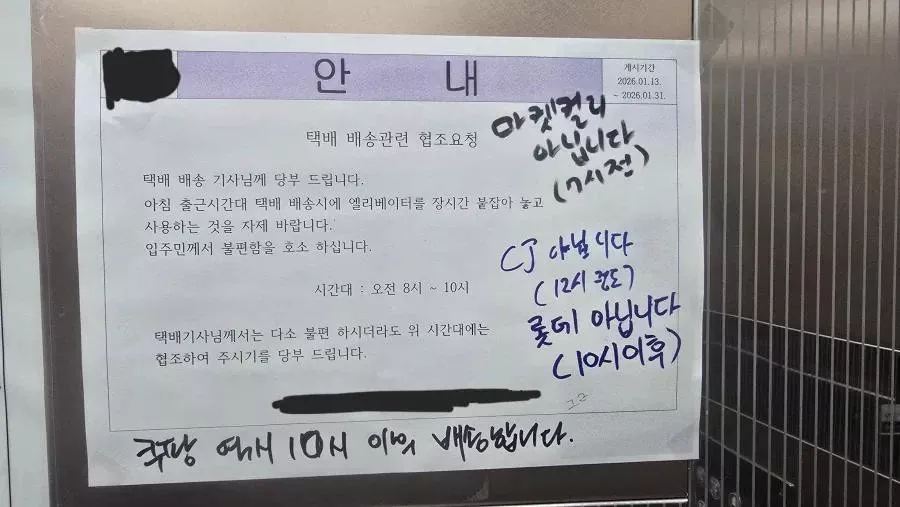 안 내
게시기간
2026.01.13.
~ 2026.01.31.
택배 배송관련 협조요청
택배 배송 기사님께 당부 드립니다.
아침 출근시간대 택배 배송시에 엘리베이터를 장시간 붙잡아 놓고
사용하는 것을 자제 바랍니다.
입주민께서 불편함을 호소 하십니다.
시간대 : 오전 8시 ~ 10시
택배기사님께서는 다소 불편 하시더라도 위 시간대에는
협조하여 주시기를 당부 드립니다.
마켓컬리
아닙니다
(7시전)
CJ 아닙니다
(12시 전도)
롯데 아닙니다
(10시이후)
쿠팡 역시 10시 이익 배송합니다.